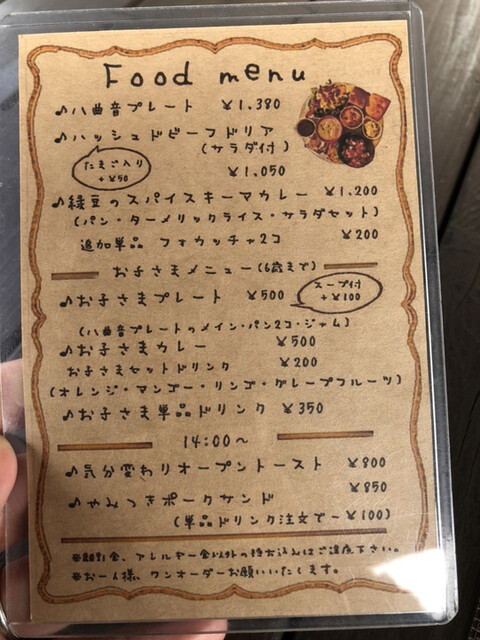 Food menu
♪八曲音プレート ¥1,380
♪ハッシュドビーフドリア
(サラダ付)
たまご入り
+¥50
¥1,050
♪緑豆のスパイスキーマカレー ¥1,200
(パン・ターメリックライス・サラダセット)
追加単品 フォカッチャ2コ ¥200
お子さまメニュー(6歳まで)
♪お子さまプレート ¥500
スープ付
+¥100
(八曲音プレートのメイン・パン2コ・ジャム)
♪お子さまカレー ¥500
お子さまセットドリンク ¥200
(オレンジ・マンゴー・リンゴ・グレープフルーツ)
♪お子さま単品ドリンク ¥350
14:00〜
♪気分変わりオープントースト ¥800
♪やみつきポークサンド ¥850
(単品ドリンク注文で-¥100)
アレルギー食以外の持ち込みはご遠慮下さい。
※お一人様、ワンオーダーお願いいたします。